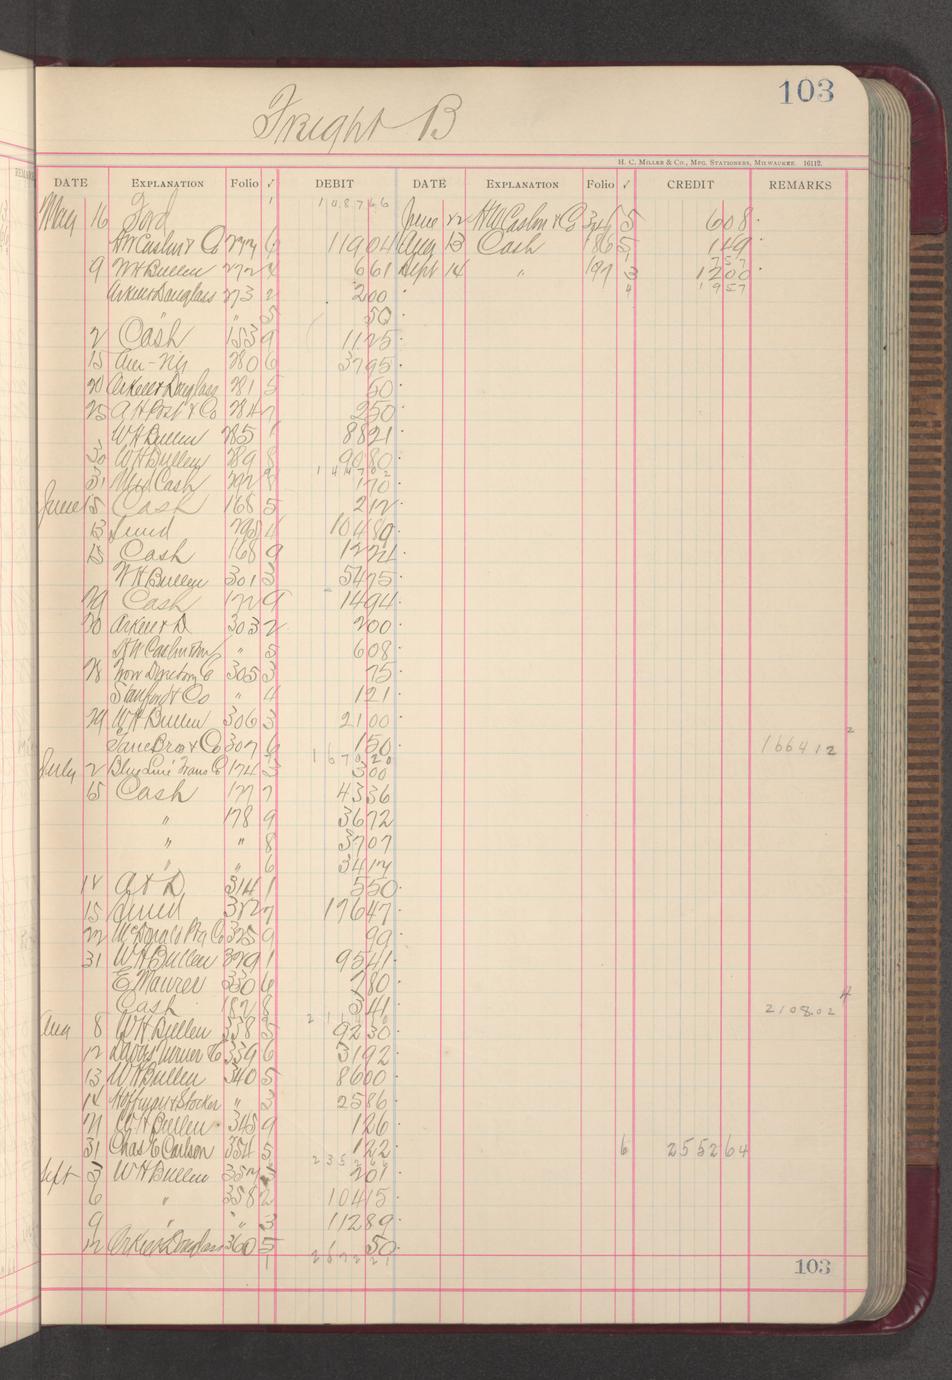 103
Freight B
H. C. MILLER & CO., MFG. STATIONERS, MILWAUKEE. 16112.
DATE EXPLANATION Folio ✓ DEBIT DATE EXPLANATION Folio ✓ CREDIT REMARKS
1 108766
May 16 Ford June 22 H W Caslon & Co 346 5 608
H W Caslon & Co 272 6 11904 Aug 13 Cash 186 5 149
757
9 W H Bullen 272 4 661 Sept 14 " 197 3 1200
Arkell & Douglass 273 2 200 4 1957
" 5 50
2 Cash 153 9 1125
15 Am - Ny 280 6 3795
20 Arkell & Douglass 281 5 50
25 A H Post & Co 284 7 250
W H Bullen 285 1 8821
30 W H Bullen 289 8 9080
31 Cash 292 8 170
June 5 Cash 168 5 212
13 Sund 295 4 10489
15 Cash 168 9 1224
W H Bullen 301 3 5475
29 Cash 172 9 1494
20 Arkell & D 303 2 200
H W Caslon " 5 608
28 Trow Directory Co 305 3 75
Stanford & Co " 4 121
29 W H Bullen 306 3 2100
Lane Bros & Co 307 6 150 166412 2
167020
July 2 Blue Line Trans Co 174 3 300
15 Cash 177 7 4336
" 178 9 3672
" " 8 3707
" " 6 3417
12 A & D 314 1 550
15 Sund 322 7 17647
22 McDonald Ptg Co 325 9 99
31 W H Bullen 329 1 9541
E Maurer 330 6 280
Cash 182 8 341 210802 4
Aug 8 W H Bullen 338 5 9230
12 Davis Turner Co 339 6 3192
13 W H Bullen 340 5 8600
14 Hoffman & Stocker " 3 2586
21 W H Bullen 345 9 126
31 Chas E Carlson 354 5 122 6 255264
Sept 3 W H Bullen 357 5 201
6 " 358 2 10415
9 " " 3 11289
12 Arkell & Douglass 360 5 50
1 267221
103